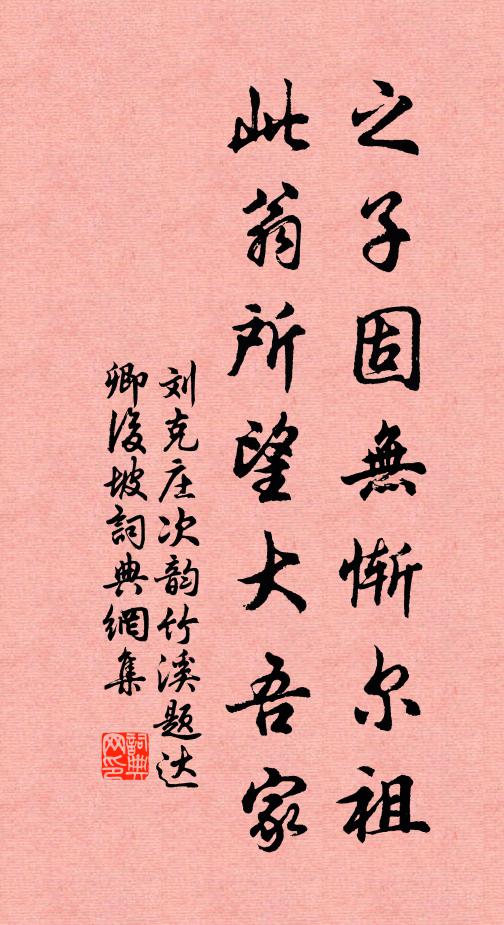 之子固無慚尔祖
此翁所望大吾家
刘克庄次韵竹溪题达
卿後坡詞典網集
詞典网印